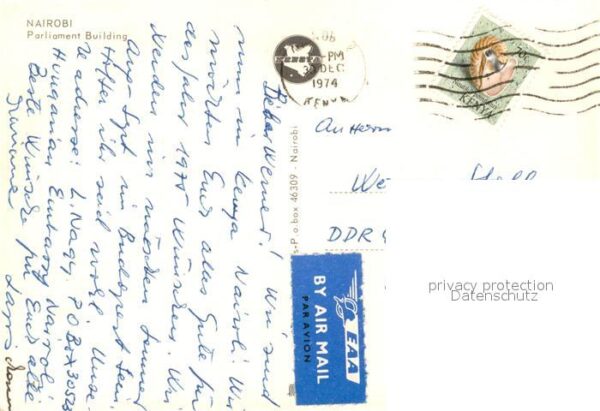 NAIROBI
Parliament Building
Lieber Werner! Wir sind
nun in Kenya Nairobi. Wir
möchten Euch alles Gute für
das Jahr 1975 wünschen. Wir
werden im nächsten Sommer
Aug-Sept in Budapest sein.
Hoffe ihr seid wohl. Unse-
re adresse: L. Nagy. P.O.Box 30523
Hungarian Embassy Nairobi
Beste Wünsche für Euch alle
KENYA
PM
DEC
1974
KENYA
KENYA
An Herrn
We
DDR
P.o.box 46309 - Nairobi
BY AIR MAIL
PAR AVION
EAA
privacy protection
Datenschutz